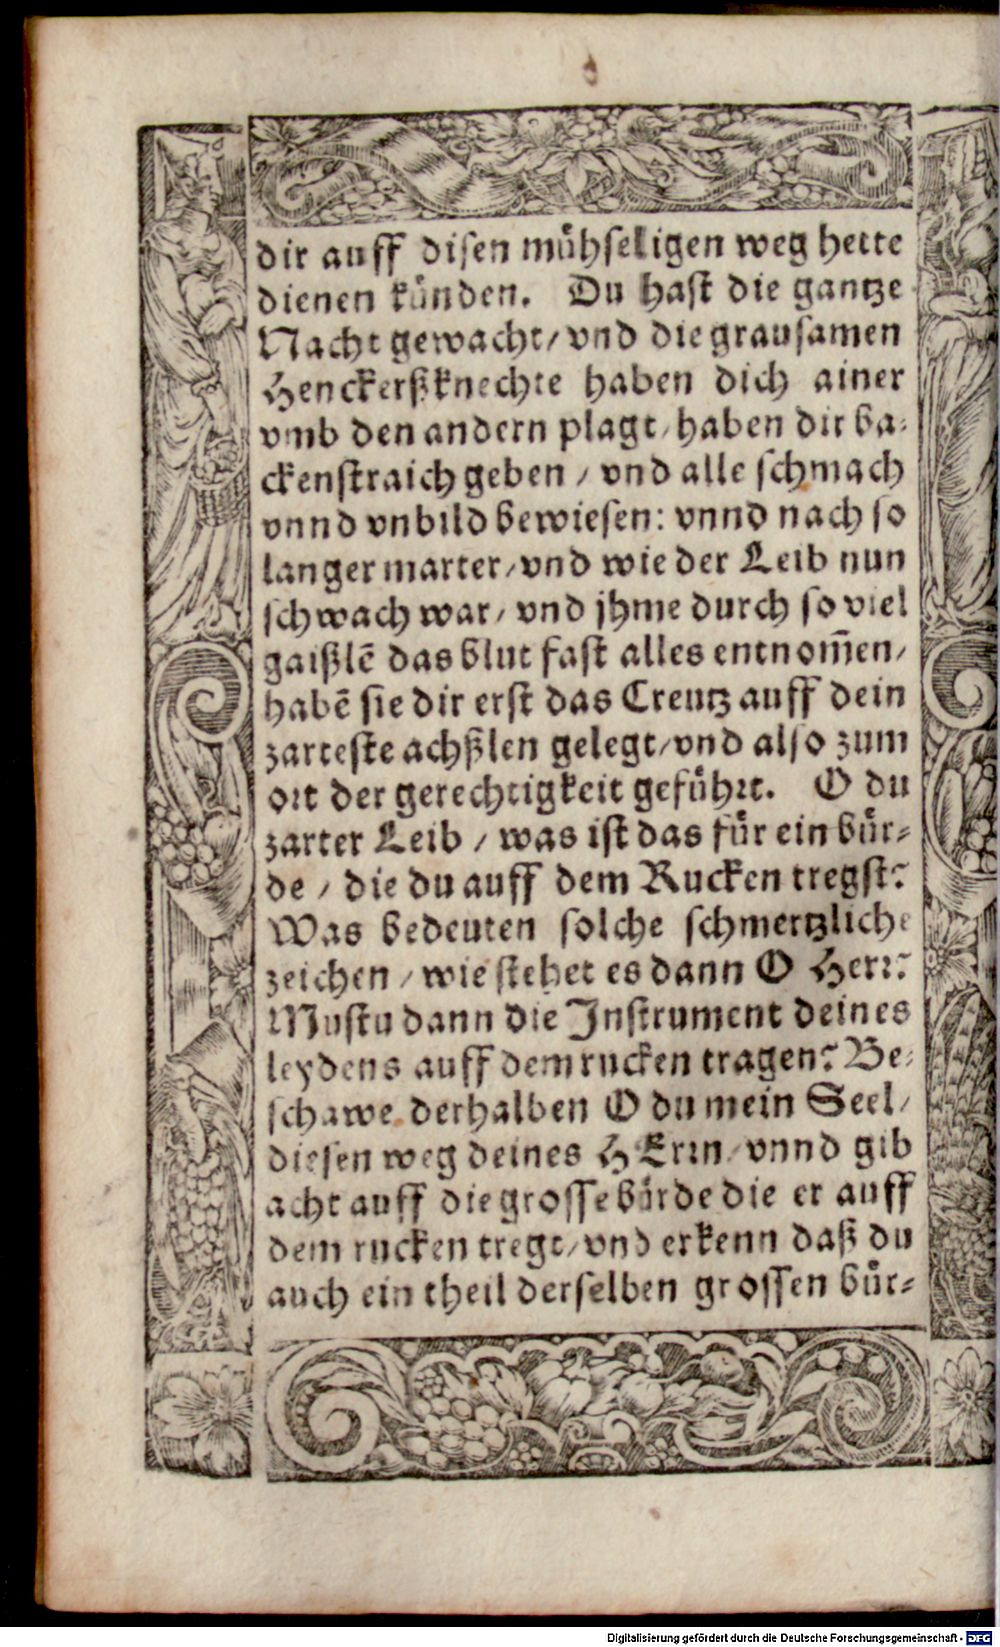 dir auff disen mühseligen weg hette
dienen künden. Du hast die gantze
Nacht gewacht/ vnd die grausamen
Henckerßknechte haben dich ainer
vmb den andern plagt/ haben dir ba-
ckenstraich geben / vnd alle schmach
vnnd vnbild bewiesen: vnnd nach so
langer marter/ vnd wie der Leib nun
schwach war/ vnd jhme durch so viel
gaißlẽ das blut fast alles entnom̃en/
habẽ sie dir erst das Creutz auff dein
zarteste achßlen gelegt/ vnd also zum
ort der gerechtigkeit geführt. O du
zarter Leib / was ist das für ein bür-
de / die du auff dem Rucken tregst?
Was bedeuten solche schmertzliche
zeichen / wie stehet es dann O Herr?
Mustu dann die Instrument deines
leydens auff dem rucken tragen? Be-
schawe derhalben O du mein Seel/
diesen weg deines HErrn/ vnnd gib
acht auff die grosse bürde die er auff
dem rucken tregt/ vnd erkenn daß du
auch ein theil derselben grossen bür-
Digitalisierung gefördert durch die Deutsche Forschungsgemeinschaft - DFG